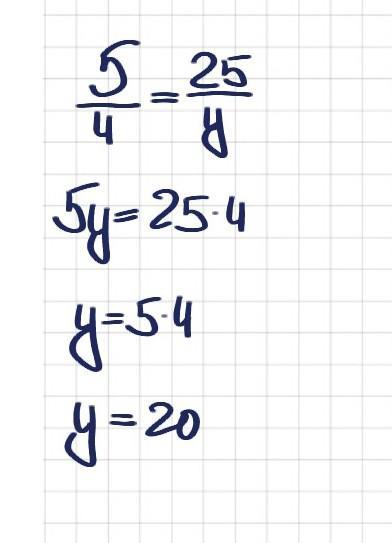 5/4 = 25/y
5y = 25·4
y = 5·4
y = 20